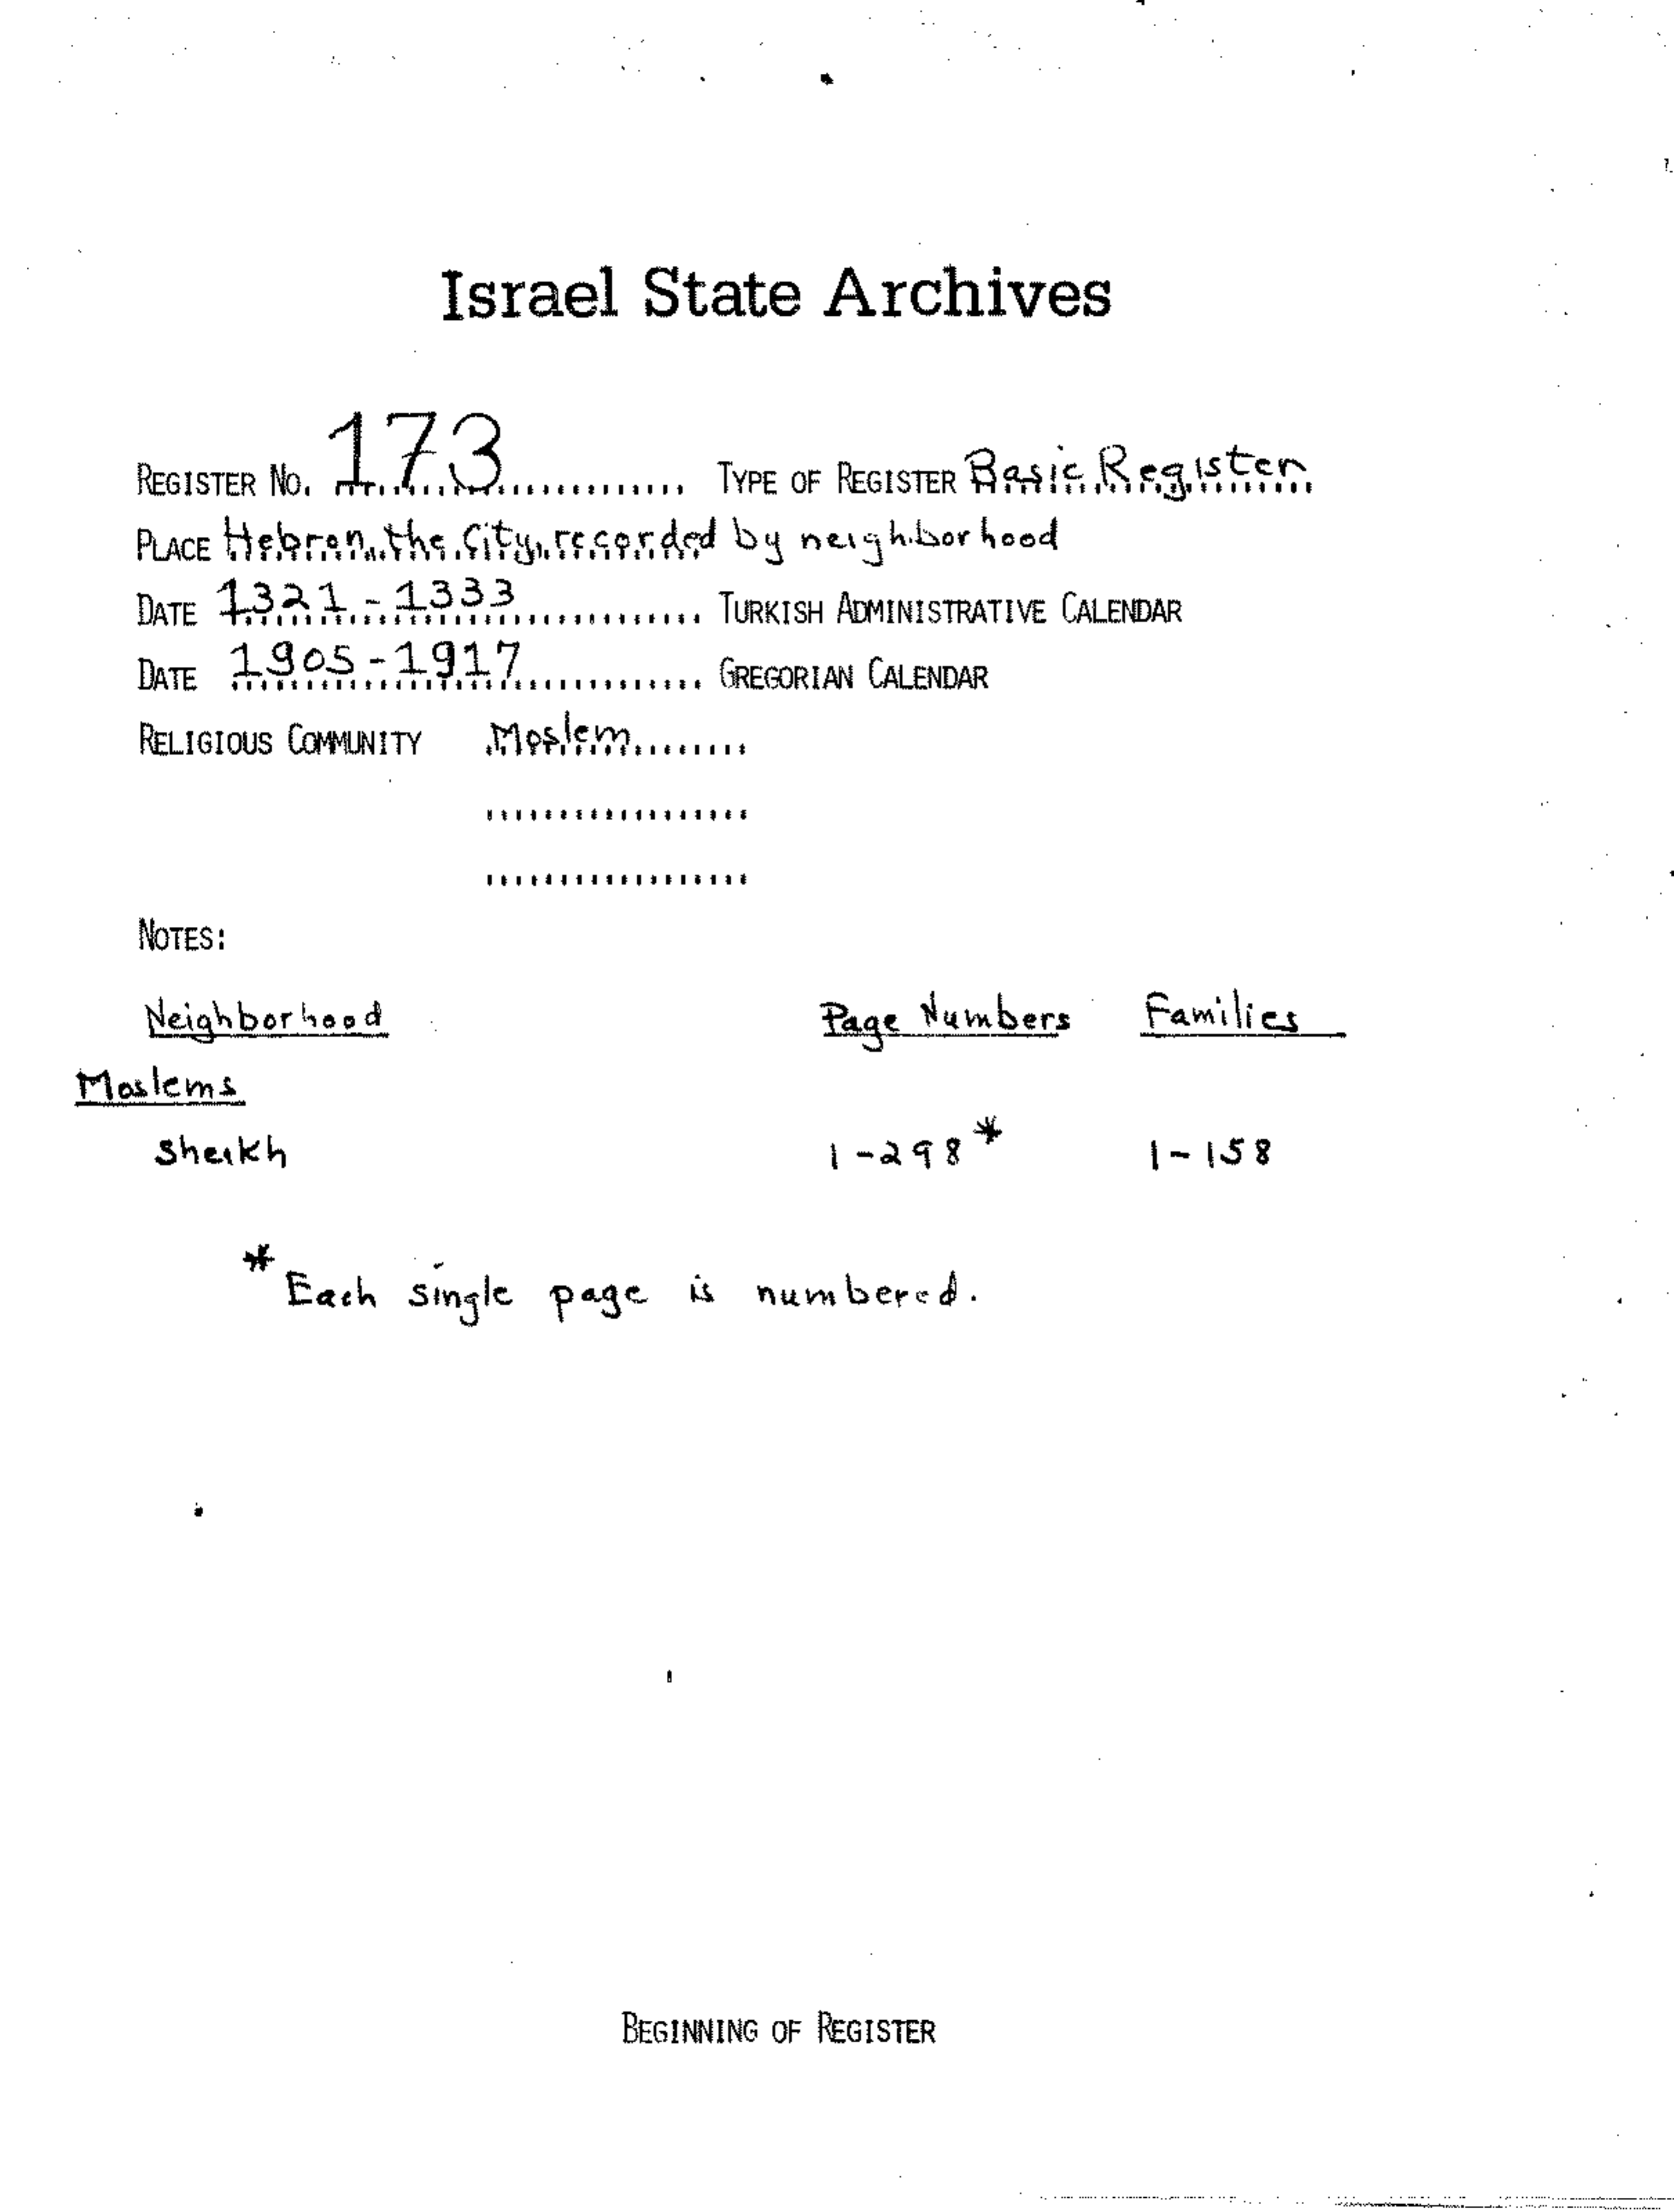 Israel State Archives
REGISTER No. 173 TYPE OF REGISTER Basic Register
PLACE Hebron, the City, recorded by neighborhood
DATE 1321 - 1333 TURKISH ADMINISTRATIVE CALENDAR
DATE 1905 - 1917 GREGORIAN CALENDAR
RELIGIOUS COMMUNITY Moslem
NOTES:
Neighborhood Page Numbers Families
Moslems
Sheikh 1-298* 1-158
* Each single page is numbered.
BEGINNING OF REGISTER